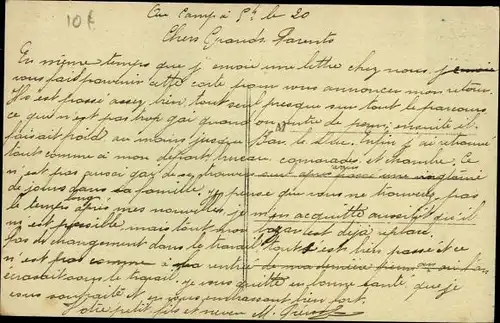 10 F
Au Camp à le 20
Chers Grands Parents
En même temps que j'envoie une lettre chez nous,
vous fait parvenir cette carte pour vous annoncer mon retour.
Il s'est passé assez bien tout seul presque sur tout le parcours
ce qui n'est pas trop gai quand on de ensuite il
faisait froid au moins jusque Bar le Duc. Enfin j'ai retrouvé
tout comme à mon départ bureau camarades et chambre. Ce
n'est pas aussi gai de se
de jours dans sa famille. Je pense que vous ne trouverez pas
le temps long après mes nouvelles, je m'en acquitte aussitôt qu'il
m'est possible, mais tout mon est déjà replacé.
Pas de changement dans le travail tout s'est très passé et ce
n'est pas comme à ma rentrée de ma dernière où l'on
le travail. Je vous quitte en bonne santé que je
vous souhaite et en vous embrassant bien fort.
Votre petit fils et neveu M.